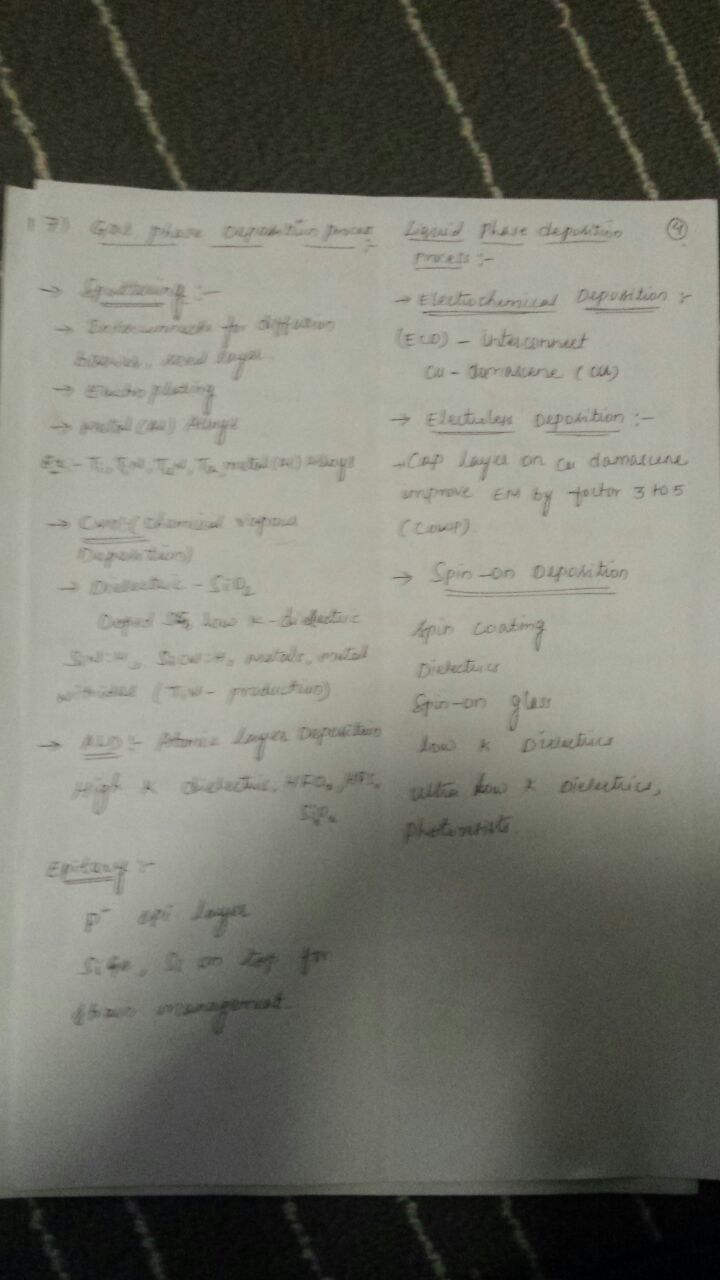 7) Gas phase Deposition process :-
→ Sputtering :-
→ for diffusion
Barrier, seed layer.
→ Electro plating
→ metal (Al) Alloys
Ex:- Ti, TiN, TiW, Ta, metal (Al) Alloys
→ (Chemical vapour
Deposition)
→ Dielectric - SiO2
Doped low K-dielectric
SiN:H, metals, metal
(TiN - production)
→ ALD :- Atomic Layer Deposition
High K dielectric, HFO2,
Epitaxy :-
P- epi layer
SiGe, Si on top for
strain management.
Liquid Phase deposition
process :-
④
→ Electrochemical Deposition :-
(ECD) - interconnect
Cu - damascene (Cu)
→ Electroless Deposition :-
→ Cap layer on Cu damascene
improve EM by factor 3 to 5
(CoWP).
→ Spin-on Deposition
Spin coating
Dielectrics
Spin-on glass
low K Dielectrics
ultra low K Dielectrics,
photoresists.